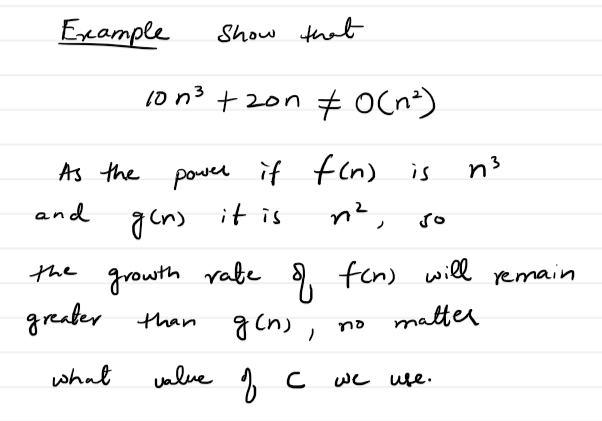 Example Show that
10 n³ + 20n ≠ O(n²)
As the power if f(n) is n³
and g(n) it is n², so
the growth rate of f(n) will remain
greater than g(n), no matter
what value of c we use.